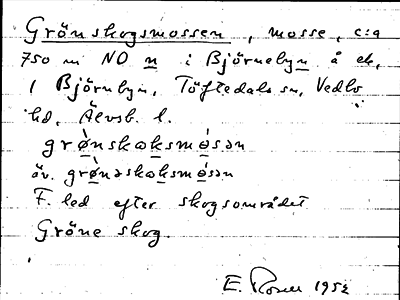 Grönskogsmossen, mosse, c:a
750 m NO n i Björnebyn å ek,
1 Björnebyn, Töftedals sn, Vedbo
hd, Älvsb. l.
grønskɷksmøsən
äv. grønəskɷksmøsən
F. led efter skogsområdet
Gröne skog.
E. Rosell 1952